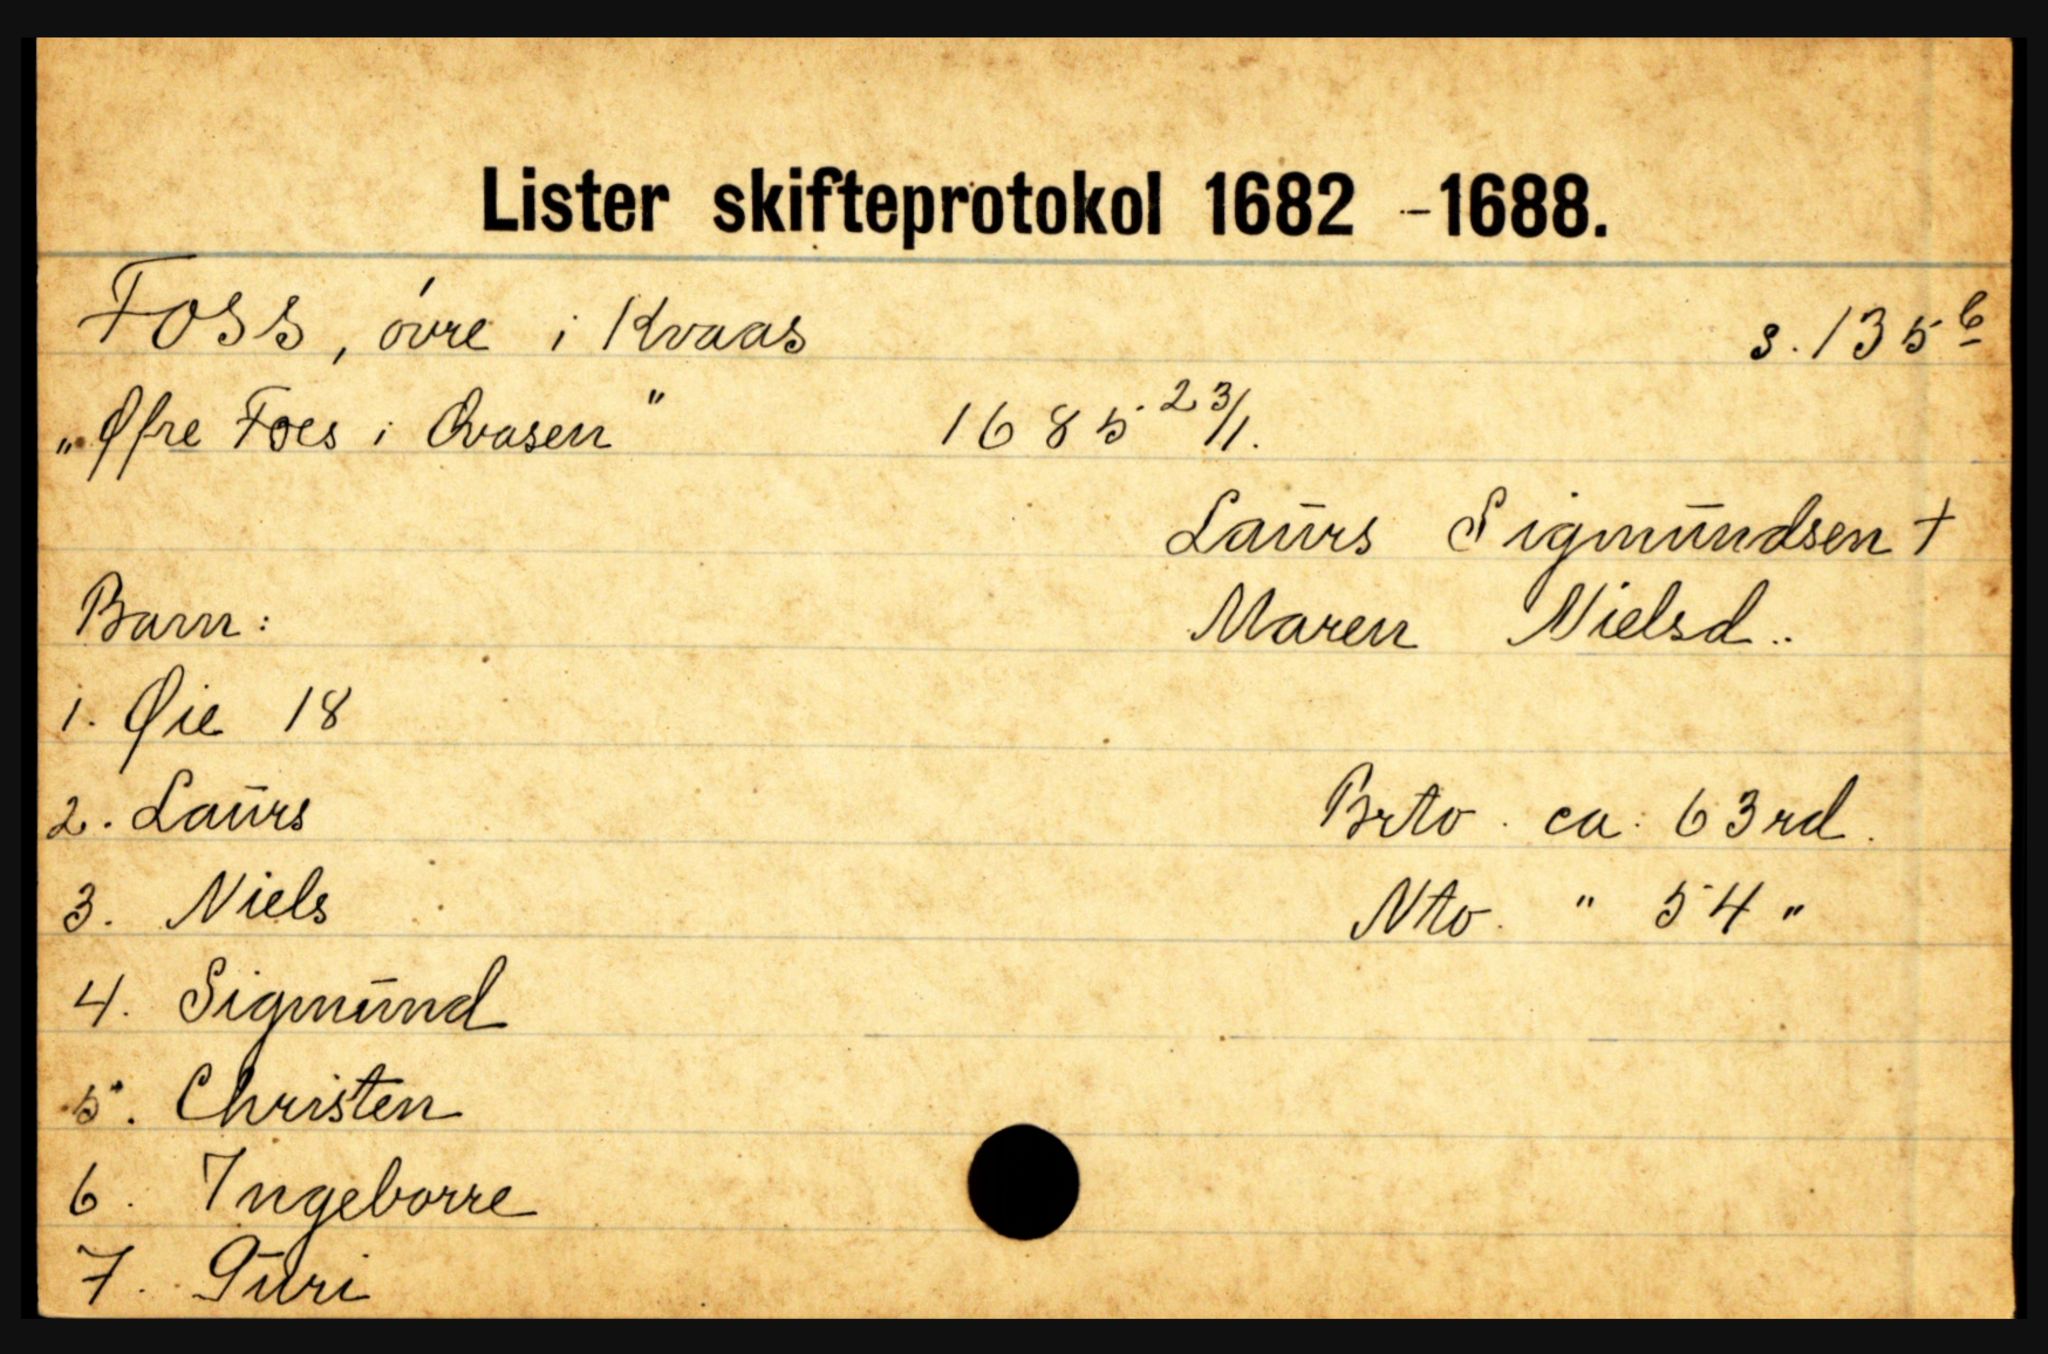 Lister skifteprotokol 1682 - 1688.
Foss, óvre i Kvaas s. 135 b
„Øfre Foes i Qvasen" 1685 23/1.
Laurs Sigmundsen +
Barn: Maren Nielsd..
1. Øie 18
2. Laurs Brto. ca. 63 rd.
3. Niels Nto. " 54 "
4. Sigmund
5. Christen
6. Ingeborre
7. Guri